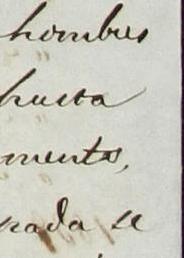 hombres
hasta
mento,
pada se